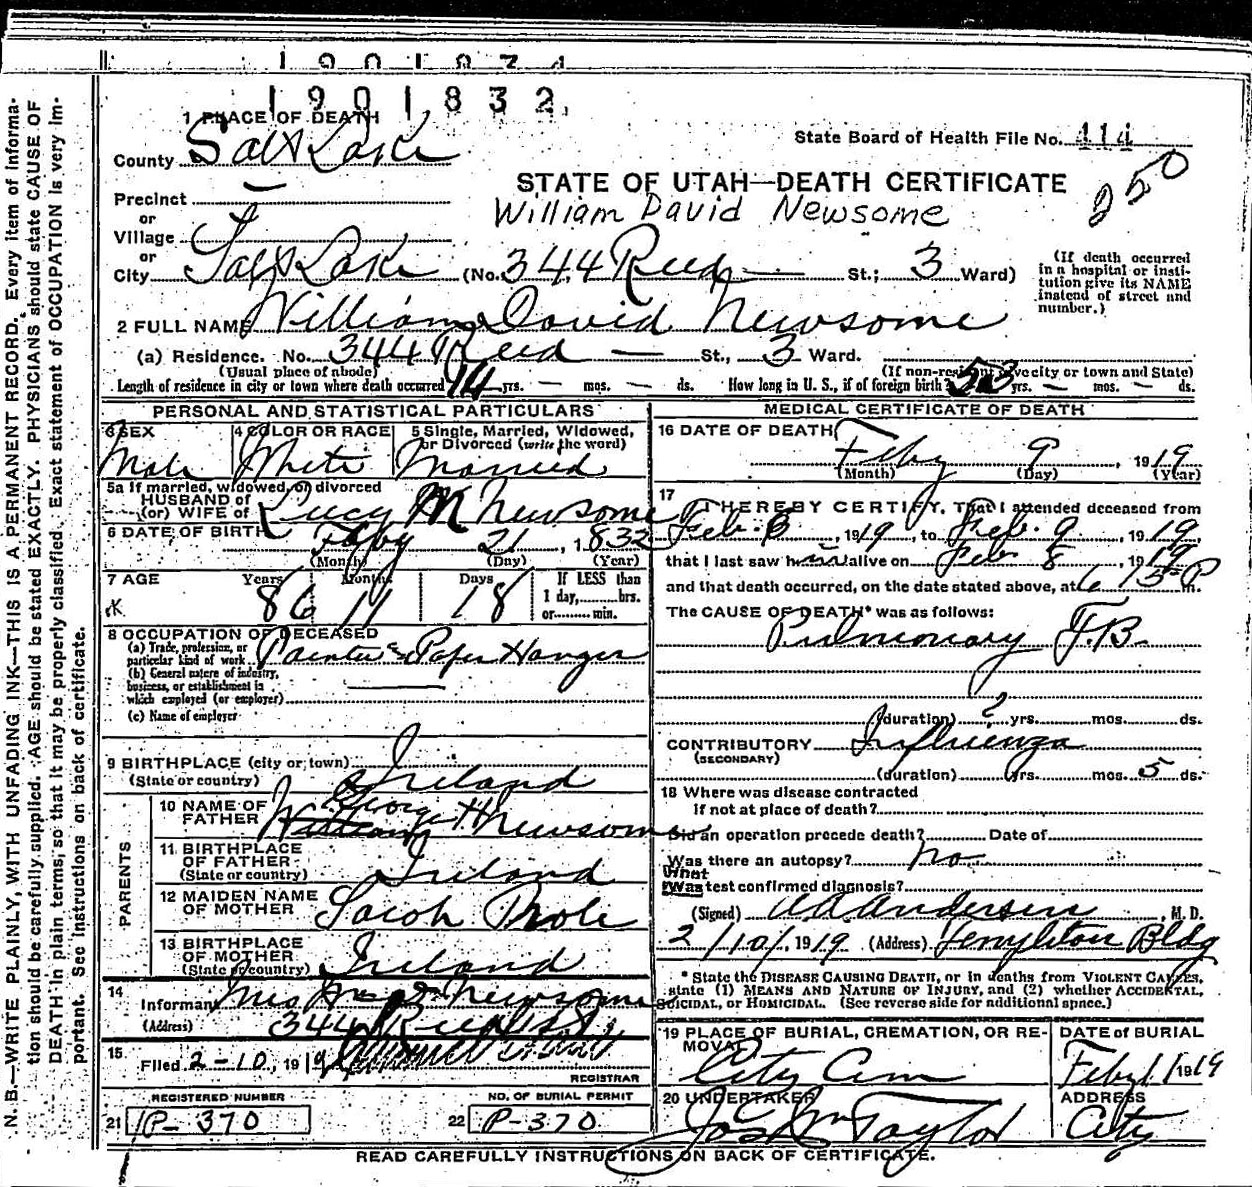 1901832
1 PLACE OF DEATH
State Board of Health File No. 414
County Salt Lake
250
STATE OF UTAH—DEATH CERTIFICATE
Precinct —
William David Newsome
or
Village
or
City Salt Lake (No. 344 Reed — St.; 3 Ward)
(If death occurred in a hospital or insti-
tution give its NAME instead of street and number.)
2 FULL NAME William David Newsome
(a) Residence. No. 344 Reed — St., 3 Ward.
(Usual place of abode) (If non-resident give city or town and State)
Length of residence in city or town where death occurred 14 yrs. — mos. — ds. How long in U. S., if of foreign birth? 53 yrs. — mos. — ds.
PERSONAL AND STATISTICAL PARTICULARS
3 SEX 4 COLOR OR RACE 5 Single, Married, Widowed, or Divorced (write the word)
Male White Married
5a If married, widowed, or divorced
HUSBAND of
(or) WIFE of Lucy M Newsome
6 DATE OF BIRTH Feby 21, 1832
(Month) (Day) (Year)
7 AGE Years Months Days If LESS than
1 day,........hrs.
or........min.
86 11 18
8 OCCUPATION OF DECEASED
(a) Trade, profession, or
particular kind of work Painter & Paper Hanger
(b) General nature of industry,
business, or establishment in
which employed (or employer) —
(c) Name of employer
9 BIRTHPLACE (city or town)
(State or country) Ireland
PARENTS
10 NAME OF FATHER George H Newsome
11 BIRTHPLACE OF FATHER
(State or country) Ireland
12 MAIDEN NAME OF MOTHER
13 BIRTHPLACE OF MOTHER
(State or country) Ireland
14 Informant Mrs Newsome
(Address) 344 Reed
15 Filed 2-10, 1919
REGISTRAR
REGISTERED NUMBER NO. OF BURIAL PERMIT
21 P-370 22 P-370
MEDICAL CERTIFICATE OF DEATH
16 DATE OF DEATH
Feby 9, 1919
(Month) (Day) (Year)
17 I HEREBY CERTIFY, That I attended deceased from
Feb. 8, 1919, to Feb. 9, 1919
that I last saw him alive on Feb 8, 1919
and that death occurred, on the date stated above, at 6 15 P m.
The CAUSE OF DEATH* was as follows:
Pulmonary T.B.
(duration) ? yrs. mos. ds.
CONTRIBUTORY Influenza
(SECONDARY)
(duration) yrs. mos. 5 ds.
18 Where was disease contracted
if not at place of death?
Did an operation precede death? Date of
Was there an autopsy? no
What
Was test confirmed diagnosis?
(Signed) A A Anderson, M. D.
2/10/, 1919 (Address) Templeton Bldg
* State the DISEASE CAUSING DEATH, or in deaths from VIOLENT CAUSES,
state (1) MEANS AND NATURE OF INJURY, and (2) whether ACCIDENTAL,
SUICIDAL, or HOMICIDAL. (See reverse side for additional space.)
19 PLACE OF BURIAL, CREMATION, OR RE-
MOVAL DATE of BURIAL
City Cem Feby 11 1919
20 UNDERTAKER ADDRESS
Jos Wm Taylor City
READ CAREFULLY INSTRUCTIONS ON BACK OF CERTIFICATE.
N. B.—WRITE PLAINLY, WITH UNFADING INK—THIS IS A PERMANENT RECORD. Every item of informa-
tion should be carefully supplied. AGE should be stated EXACTLY. PHYSICIANS should state CAUSE OF
DEATH in plain terms, so that it may be properly classified. Exact statement of OCCUPATION is very im-
portant. See instructions on back of certificate.